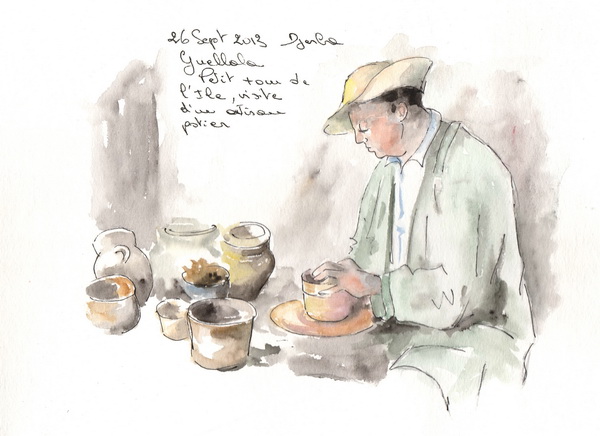 26 Sept 2013 Djerba
Guellala
Petit tour de
l'Ile, visite
d'un artisan
potier